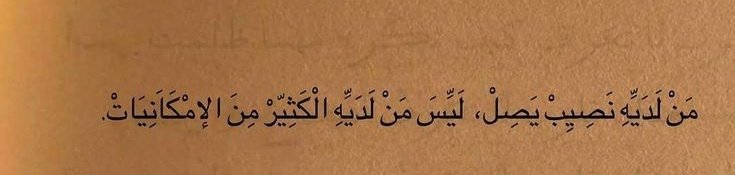 مَنْ لَدَيِّهِ نَصِيِبْ يَصِلْ، لَيِّسَ مَنْ لَدَيِّهِ الْكَثِيِّرْ مِنَ الإمْكَاَنِيَاتْ.